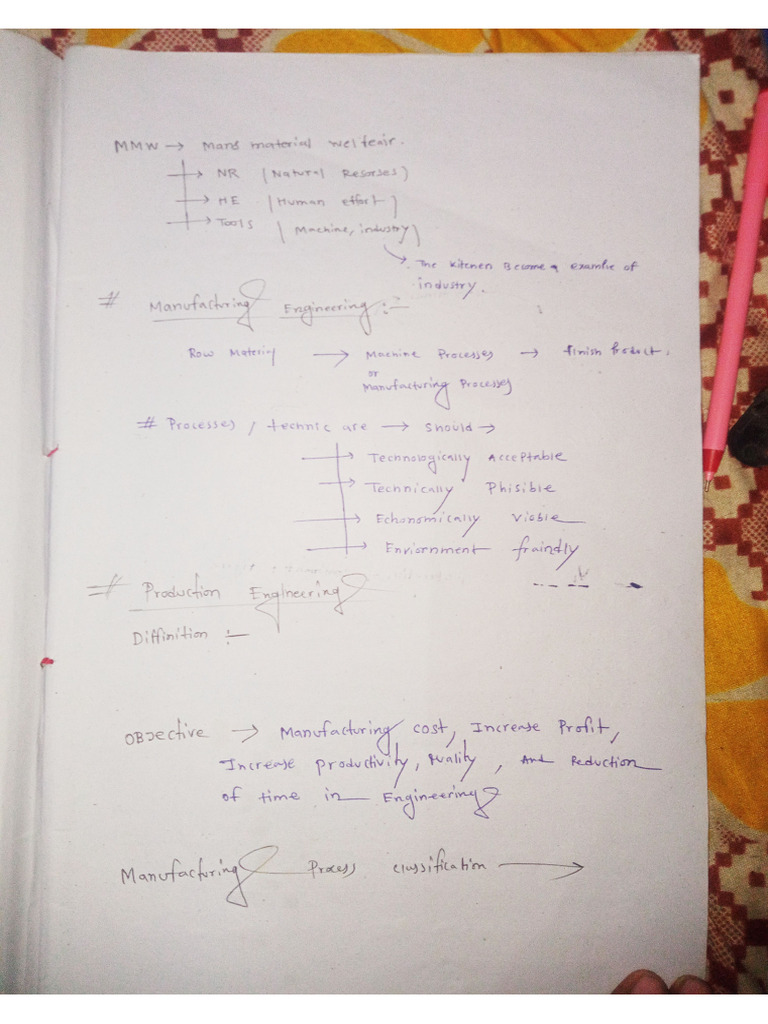 MMW → Mans material welfair.
→ NR (Natural Resorses)
→ HE (Human effort)
→ Tools (Machine, industry)
→ The kitchen Become a examlie of
industry.
# Manufacturing Engineering :-
Row Material → Machine Processes → finish Product.
or
Manufacturing Processes
# Processes / technic are → should →
→ Technologically Acceptable
→ Technically Phisible
→ Echonomically Viable
→ Enviornment fraindly
# Production Engineering
Diffinition :-
OBJective → Manufacturing cost, Increase Profit,
Increase Productivity, Quality, And Reduction
of time in Engineering
Manufacturing Process classification →